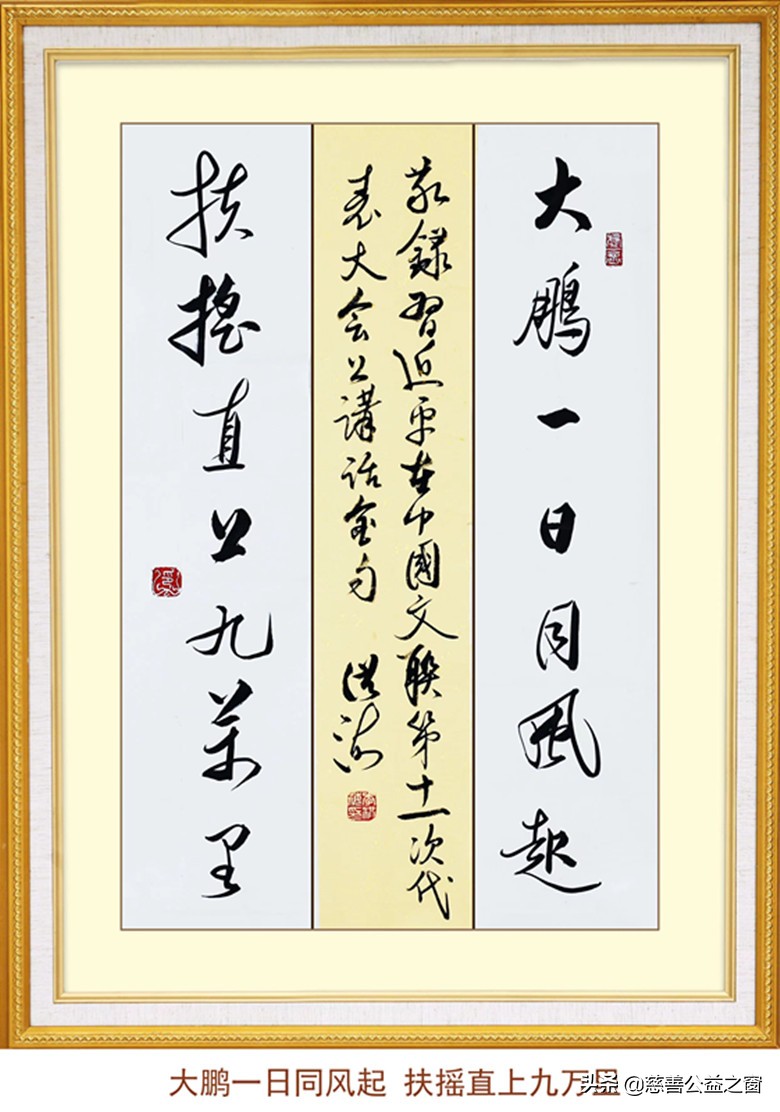 大鹏一日同风起
敬録習近平在中國文聯第十一次代
表大会上講话金句
扶摇直上九萬里
大鹏一日同风起 扶摇直上九万
头条 @慈善公益之窗